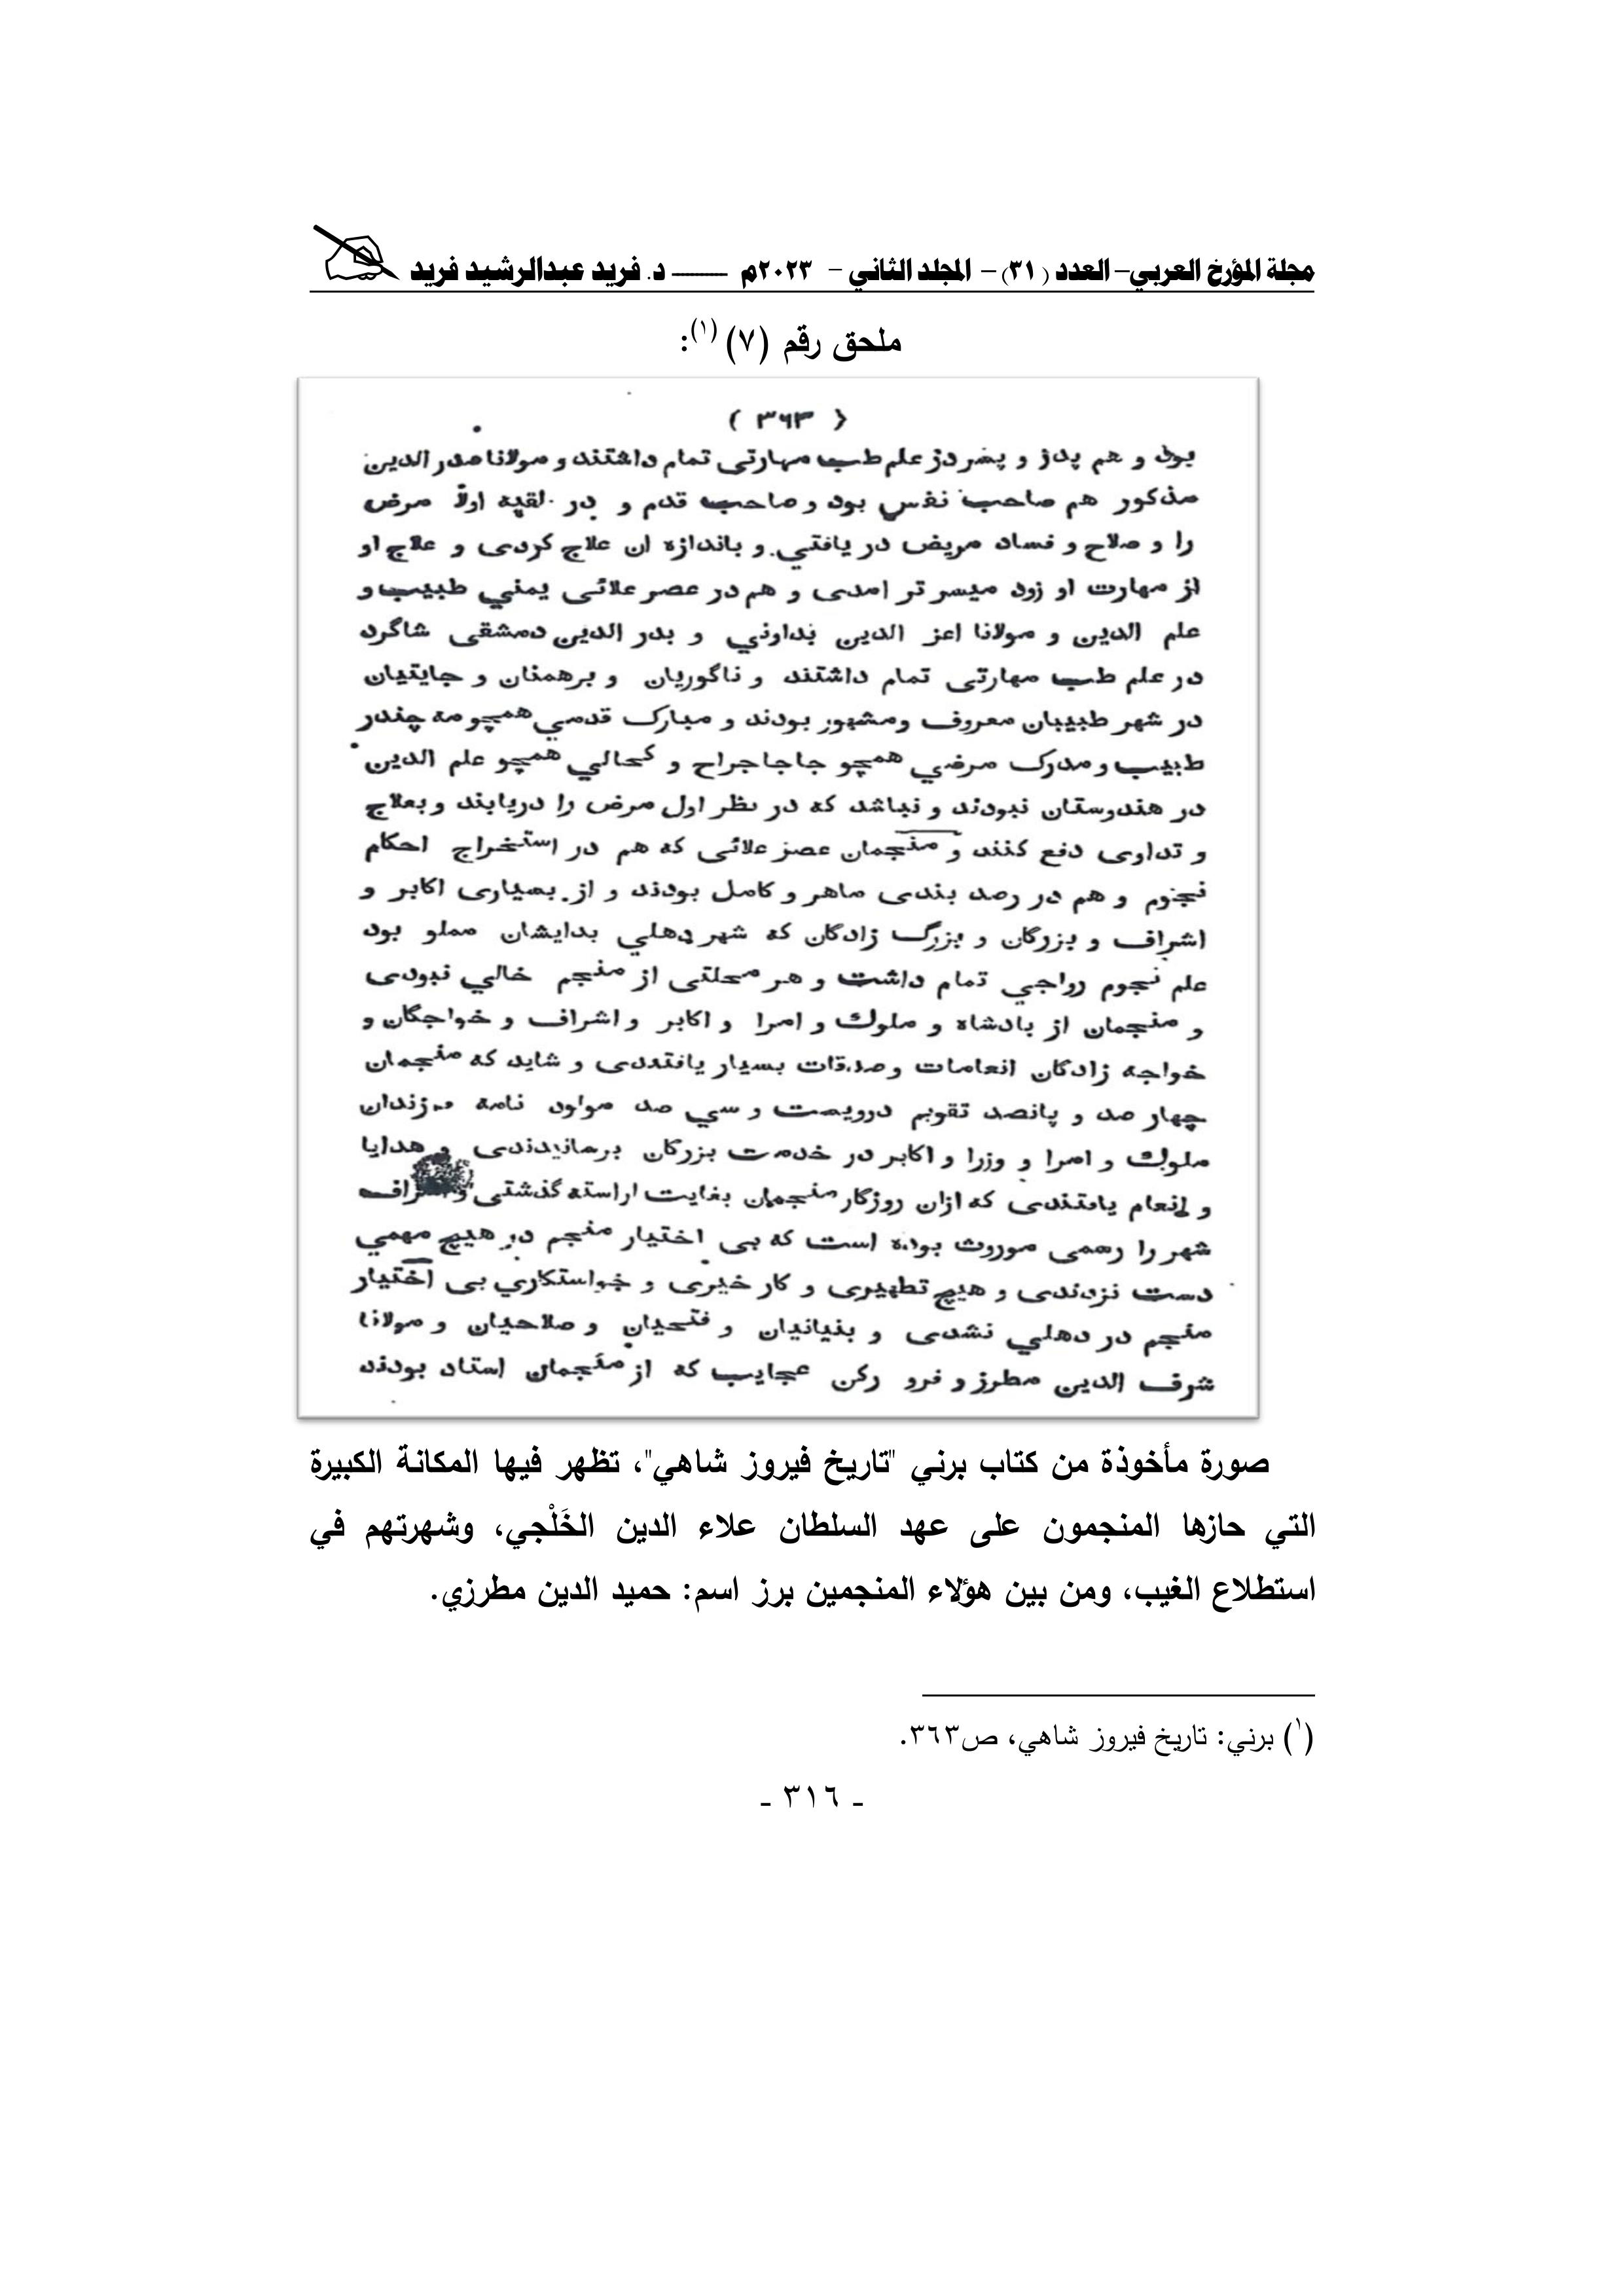 مجلة المؤرخ العربي – العدد (٣١) – المجلد الثاني – ٢٠٢٣م ــــــــ د. فريد عبدالرشيد فريد
ملحق رقم (٧) (١):
( ٣٦٣ )
بود و هم پدر و پسر در علم طب مهارتى تمام داشتند و مولانا صدر الدين
مذكور هم صاحب نفس بود و صاحب قدم و در اولاً مرض
را و صلاح و فساد مريض در يافتي و باندازه ان علاج كردى و علاج او
از مهارت او زود ميسر تر امدى و هم در عصر علائى يمني طبيب و
علم الدين و مولانا اعز الدين بداوني و بدر الدين دمشقى شاگرد
در علم طب مهارتى تمام داشتند و ناگوريان و برهمنان و جايتيان
در شهر طبيبان معروف ومشهور بودند و مبارك قدمي همچو مه چندر
طبيب و مدرك مرضي همچو جاجا جراح و كحالي همچو علم الدين
در هندوستان نبودند و نباشد كه در نظر اول مرض را دريابند و بعلاج
و تداوى دفع كنند و منجمان عصر علائى كه هم در استخراج احكام
نجوم و هم در رصد بندى ماهر و كامل بودند و از بسيارى اكابر و
اشراف و بزرگان و بزرگ زادگان كه شهر دهلي بدايشان مملو بود
علم نجوم رواجي تمام داشت و هر محلتى از منجم خالي نبودى
و منجمان از بادشاه و ملوك و امرا و اكابر و اشراف و خواجگان و
خواجه زادگان انعامات و صدقات بسيار يافتندى و شايد كه منجمان
چهار صد و پانصد تقويم درويست و سي صد مولود نامه فرزندان
ملوك و امرا و وزرا و اكابر در خدمت بزرگان برسانيدندى و هدايا
و انعام يافتندى كه ازان روزگار منجمان بغايت اراسته گذشتى و اشراف
شهر را رسمى موروث بوده است كه بى اختيار منجم در هيچ مهمي
دست نزدندى و هيچ تطهيرى و كار خيرى و خواستكاري بى اختيار
منجم در دهلي نشدى و بنيانيان و فتحيان و صلاحيان و مولانا
شرف الدين مطرز و فرو ركن عجايب كه از منجمان استاد بودند
صورة مأخوذة من كتاب برني "تاريخ فيروز شاهي"، تظهر فيها المكانة الكبيرة
التي حازها المنجمون على عهد السلطان علاء الدين الخَلْجي، وشهرتهم في
استطلاع الغيب، ومن بين هؤلاء المنجمين برز اسم: حميد الدين مطرزي.
(١) برني: تاريخ فيروز شاهي، ص٣٦٣.
- ٣١٦ -